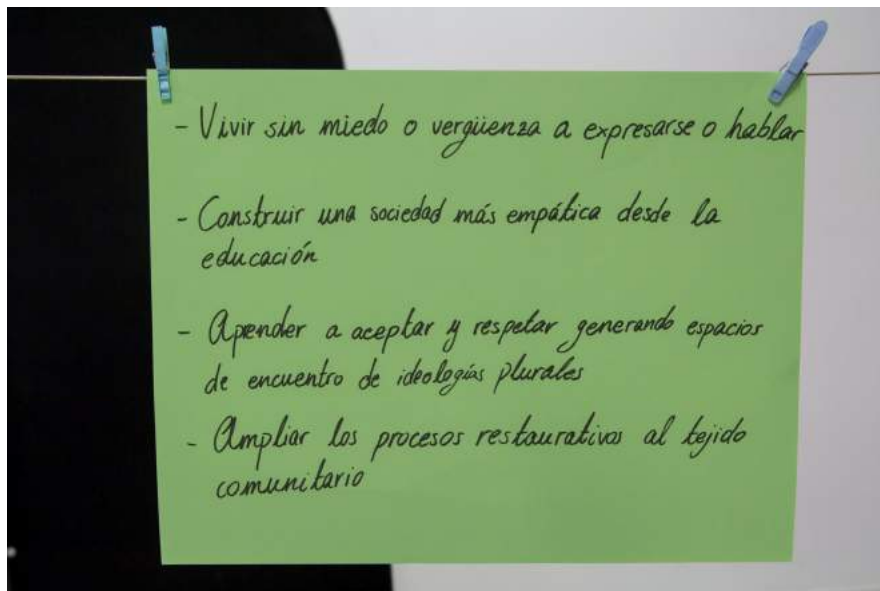 - Vivir sin miedo o vergüenza a expresarse o hablar
- Construir una sociedad más empática desde la
educación
- Apender a aceptar y respetar generando espacios
de encuentro de ideologías plurales
- Ampliar los procesos restaurativos al tejido
comunitario